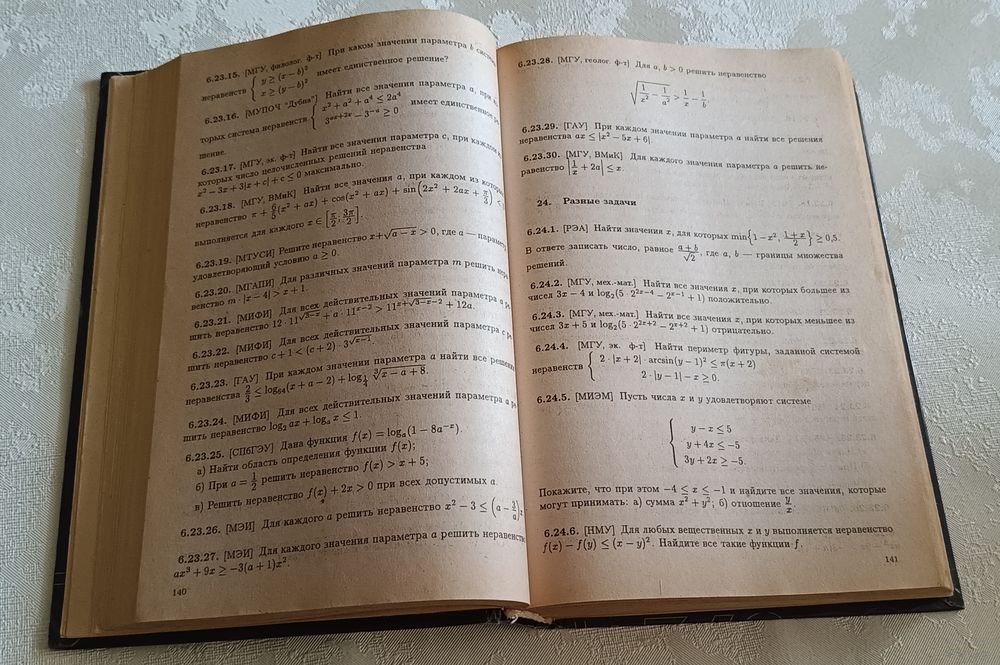 6.23.15. [МГУ, филолог. ф-т] При каком значении параметра b
неравенств { y ≥ (x − b)² x ≥ (y − b)² имеет единственное решение?
6.23.16. [МУПОЧ "Дубна"] Найти все значения параметра a, при
торых система неравенств { x² + a² + a⁴ ≤ 2a⁴ имеет единственное
шение.
6.23.17. [МГУ, эк. ф-т] Найти все значения параметра c, при каждом
которых число целочисленных решений неравенства
x² − 3x + 3|x + c| + c ≤ 0 максимально.
6.23.18. [МГУ, ВМиК] Найти все значения a, при каждом из
неравенство π + 6/5(x² + ax) + cos(x² + ax) + sin(2x² + 2ax + π/3) <
выполняется для каждого x ∈ [π/2; 3π/2].
6.23.19. [МТУСИ] Решите неравенство x+√(a − x) > 0, где a —
удовлетворяющий условию a ≥ 0.
6.23.20. [МГАПИ] Для различных значений параметра m решить
венство m · |x − 4| > x + 1.
6.23.21. [МИФИ] Для всех действительных значений параметра a
шить неравенство 12 · 11^√(3−x) + a · 11^(x−2) > 11^(x+√(3−x)−2) + 12a.
6.23.22. [МИФИ] Для всех действительных значений параметра c
шить неравенство c + 1 < (c + 2) · 3^√(x−1).
6.23.23. [ГАУ] При каждом значении параметра a найти все решения
неравенства 2/3 ≤ log₆₄(x + a − 2) + log_(1/4) ∛(x − a + 8).
6.23.24. [МИФИ] Для всех действительных значений параметра a
шить неравенство log₂ ax + logₐ x ≤ 1.
6.23.25. [СПбГЭУ] Дана функция f(x) = logₐ(1 − 8a⁻ˣ).
а) Найти область определения функции f(x);
б) При a = 1/2 решить неравенство f(x) > x + 5;
в) Решить неравенство f(x) + 2x > 0 при всех допустимых a.
6.23.26. [МЭИ] Для каждого a решить неравенство x² − 3 ≤ (a − 3/a)
6.23.27. [МЭИ] Для каждого значения параметра a решить неравенство
ax³ + 9x ≥ −3(a + 1)x².
140
6.23.28. [МГУ, геолог. ф-т] Для a, b > 0 решить неравенство
√(1/x² − 1/a²) > 1/x − 1/b.
6.23.29. [ГАУ] При каждом значении параметра a найти все решения
неравенства ax ≤ |x² − 5x + 6|.
6.23.30. [МГУ, ВМиК] Для каждого значения параметра a решить не-
равенство |1/x + 2a| ≤ x.
24. Разные задачи
6.24.1. [РЭА] Найти значения x, для которых min{1 − x², (1 + x)/2} ≥ 0,5.
В ответе записать число, равное (a + b)/√2, где a, b — границы множества
решений.
6.24.2. [МГУ, мех.-мат.] Найти все значения x, при которых большее из
чисел 3x − 4 и log₂(5 · 2^(2x−4) − 2^(x−1) + 1) положительно.
6.24.3. [МГУ, мех.-мат.] Найти все значения x, при которых меньшее из
чисел 3x + 5 и log₂(5 · 2^(2x+2) − 2^(x+2) + 1) отрицательно.
6.24.4. [МГУ, эк. ф-т] Найти периметр фигуры, заданной системой
неравенств { 2 · |x + 2| · arcsin(y − 1)² ≤ π(x + 2)
2 · |y − 1| − x ≥ 0.
6.24.5. [МИЭМ] Пусть числа x и y удовлетворяют системе
{ y − x ≤ 5
y + 4x ≤ −5
3y + 2x ≥ −5.
Покажите, что при этом −4 ≤ x ≤ −1 и найдите все значения, которые
могут принимать: а) сумма x² + y²; б) отношение y/x.
6.24.6. [НМУ] Для любых вещественных x и y выполняется неравенство
f(x) − f(y) ≤ (x − y)². Найдите все такие функции f.
141